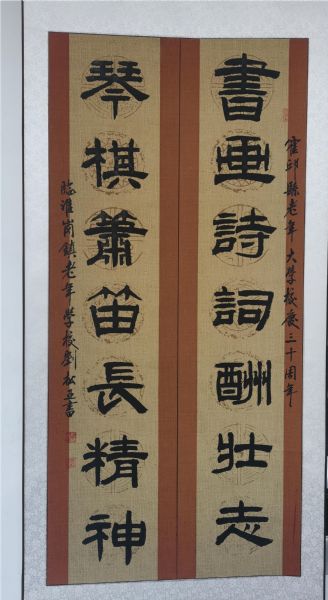 霍邱縣老年大學校慶三十周年
書画詩詞酬壮志
琴棋簫笛長精神
臨淮崗鎮老年學校劉松立書